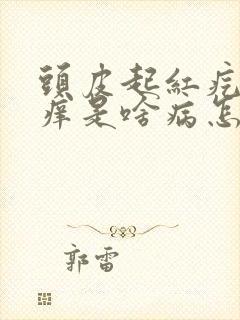 頭皮起紅疙
痒是啥病怎
郭雷